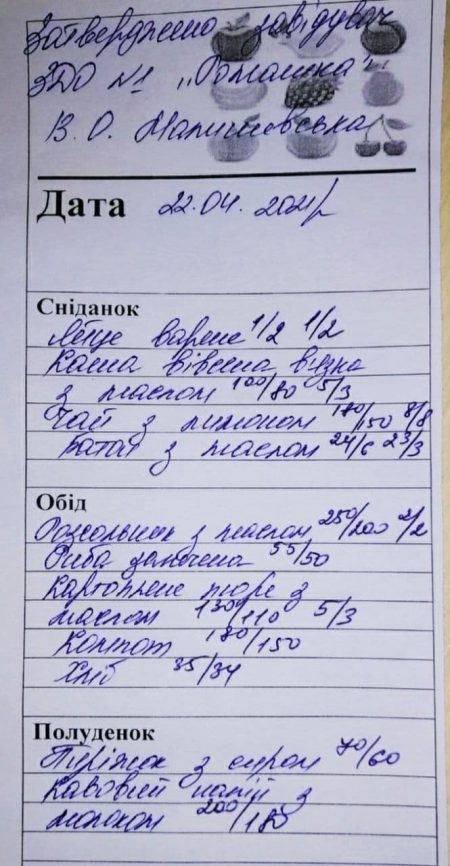 Затверджено завідувач
ЗДО №1 „Ромашка"
В. О. Малишевська
Дата 22.04. 2021р
Сніданок
Яйце варене 1/2 1/2
Каша вівсяна в'язка
з маслом 100/80 5/3
Чай з лимоном 180/150 8/8
Батон з маслом 24/6 23/3
Обід
Розсольник з маслом 250/200 2/2
Риба запечена 55/50
Картопляне пюре з
маслом 130/110 5/3
Компот 180/150
Хліб 35/34
Полуденок
Пиріжок з сиром 70/60
Кавовий напій з
молоком 200/180